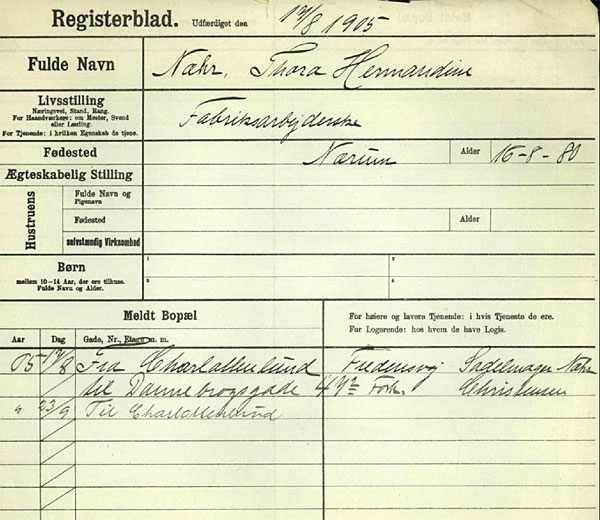 Meldt Bopæl
Registerblad. Udfærdiget den 19/8 1905
Fulde Navn Næhr, Thora Hermandine
Livsstilling Fabriksarbejderske
Næringsvei, Stand, Rang.
For Haandværkere: om Mester, Svend
eller Lærling.
For Tjenende: i hvilken Egenskab de tjene.
Fødested Nærum Alder 16-8-80
Ægteskabelig Stilling
Hustruens
Fulde Navn og
Pigenavn
Fødested Alder
selvstændig Virksomhed
Børn 1 3
mellem 10-14 Aar, der ere tilhuse. 2 4
Fulde Navn og Alder.
Meldt Bopæl
For høiere og lavere Tjenende: i hvis Tjeneste de ere.
For Logerende: hos hvem de have Logis.
Aar Dag Gade, Nr., Etage m. m.
05 19/8 Fra Charlottenlund Fredensvej Sadelmager Næhr
til Dannebrogsgade 4 Forh. Christensen
" 23/9 Til Charlottenlund